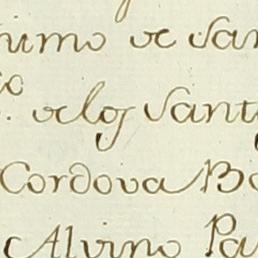 nimo de San
de los Sant
Cordova Ba
Alvino Pa